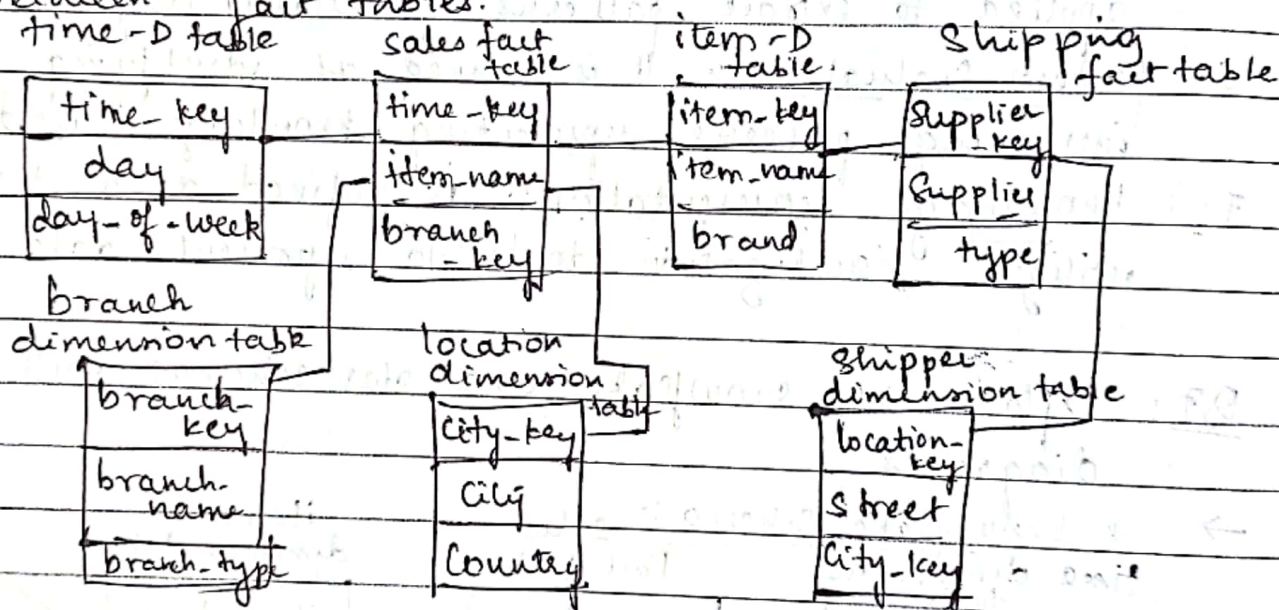 fact tables.
time-D table
time-key
day
day-of-week
sales fact
table
time-key
item-name
branch
-key
item-D
table
item-key
item-name
brand
Shipping
fact table
Supplier
-key
Supplier
type
branch
dimension table
branch-
key
branch-
name
branch-type
location
dimension
table
City-key
City
Country
Shipper
dimension table
location-
key
Street
City-key